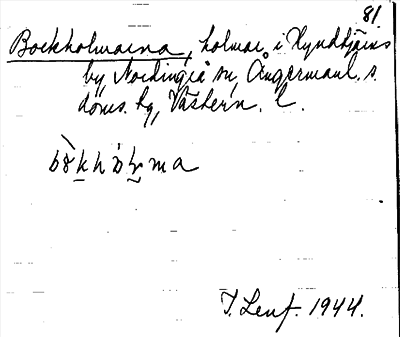 81
Bockholmarna, holmar i Hyndtjärns
by, Nordingrå sn, Ångermanl. s.
doms. hg, Västern. l.
bòkhòlma
I. Leuf. 1944.